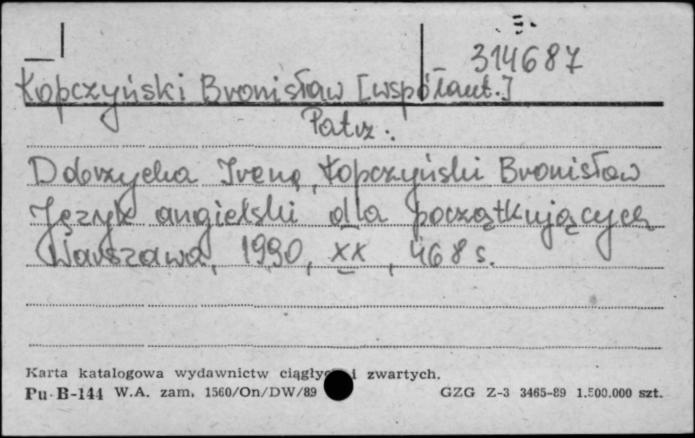 314687
Kopczyński Bronisław [współaut.]
Patrz:
Dobrzycka Irena, Kopczyński Bronisław
Język angielski dla początkujących
Warszawa, 1990, XX, 468 s.
Karta katalogowa wydawnictw ciągłyc i zwartych.
Pu-B-144 W.A. zam. 1560/On/DW/89 GZG Z-3 3465-89 1.500.000 szt.